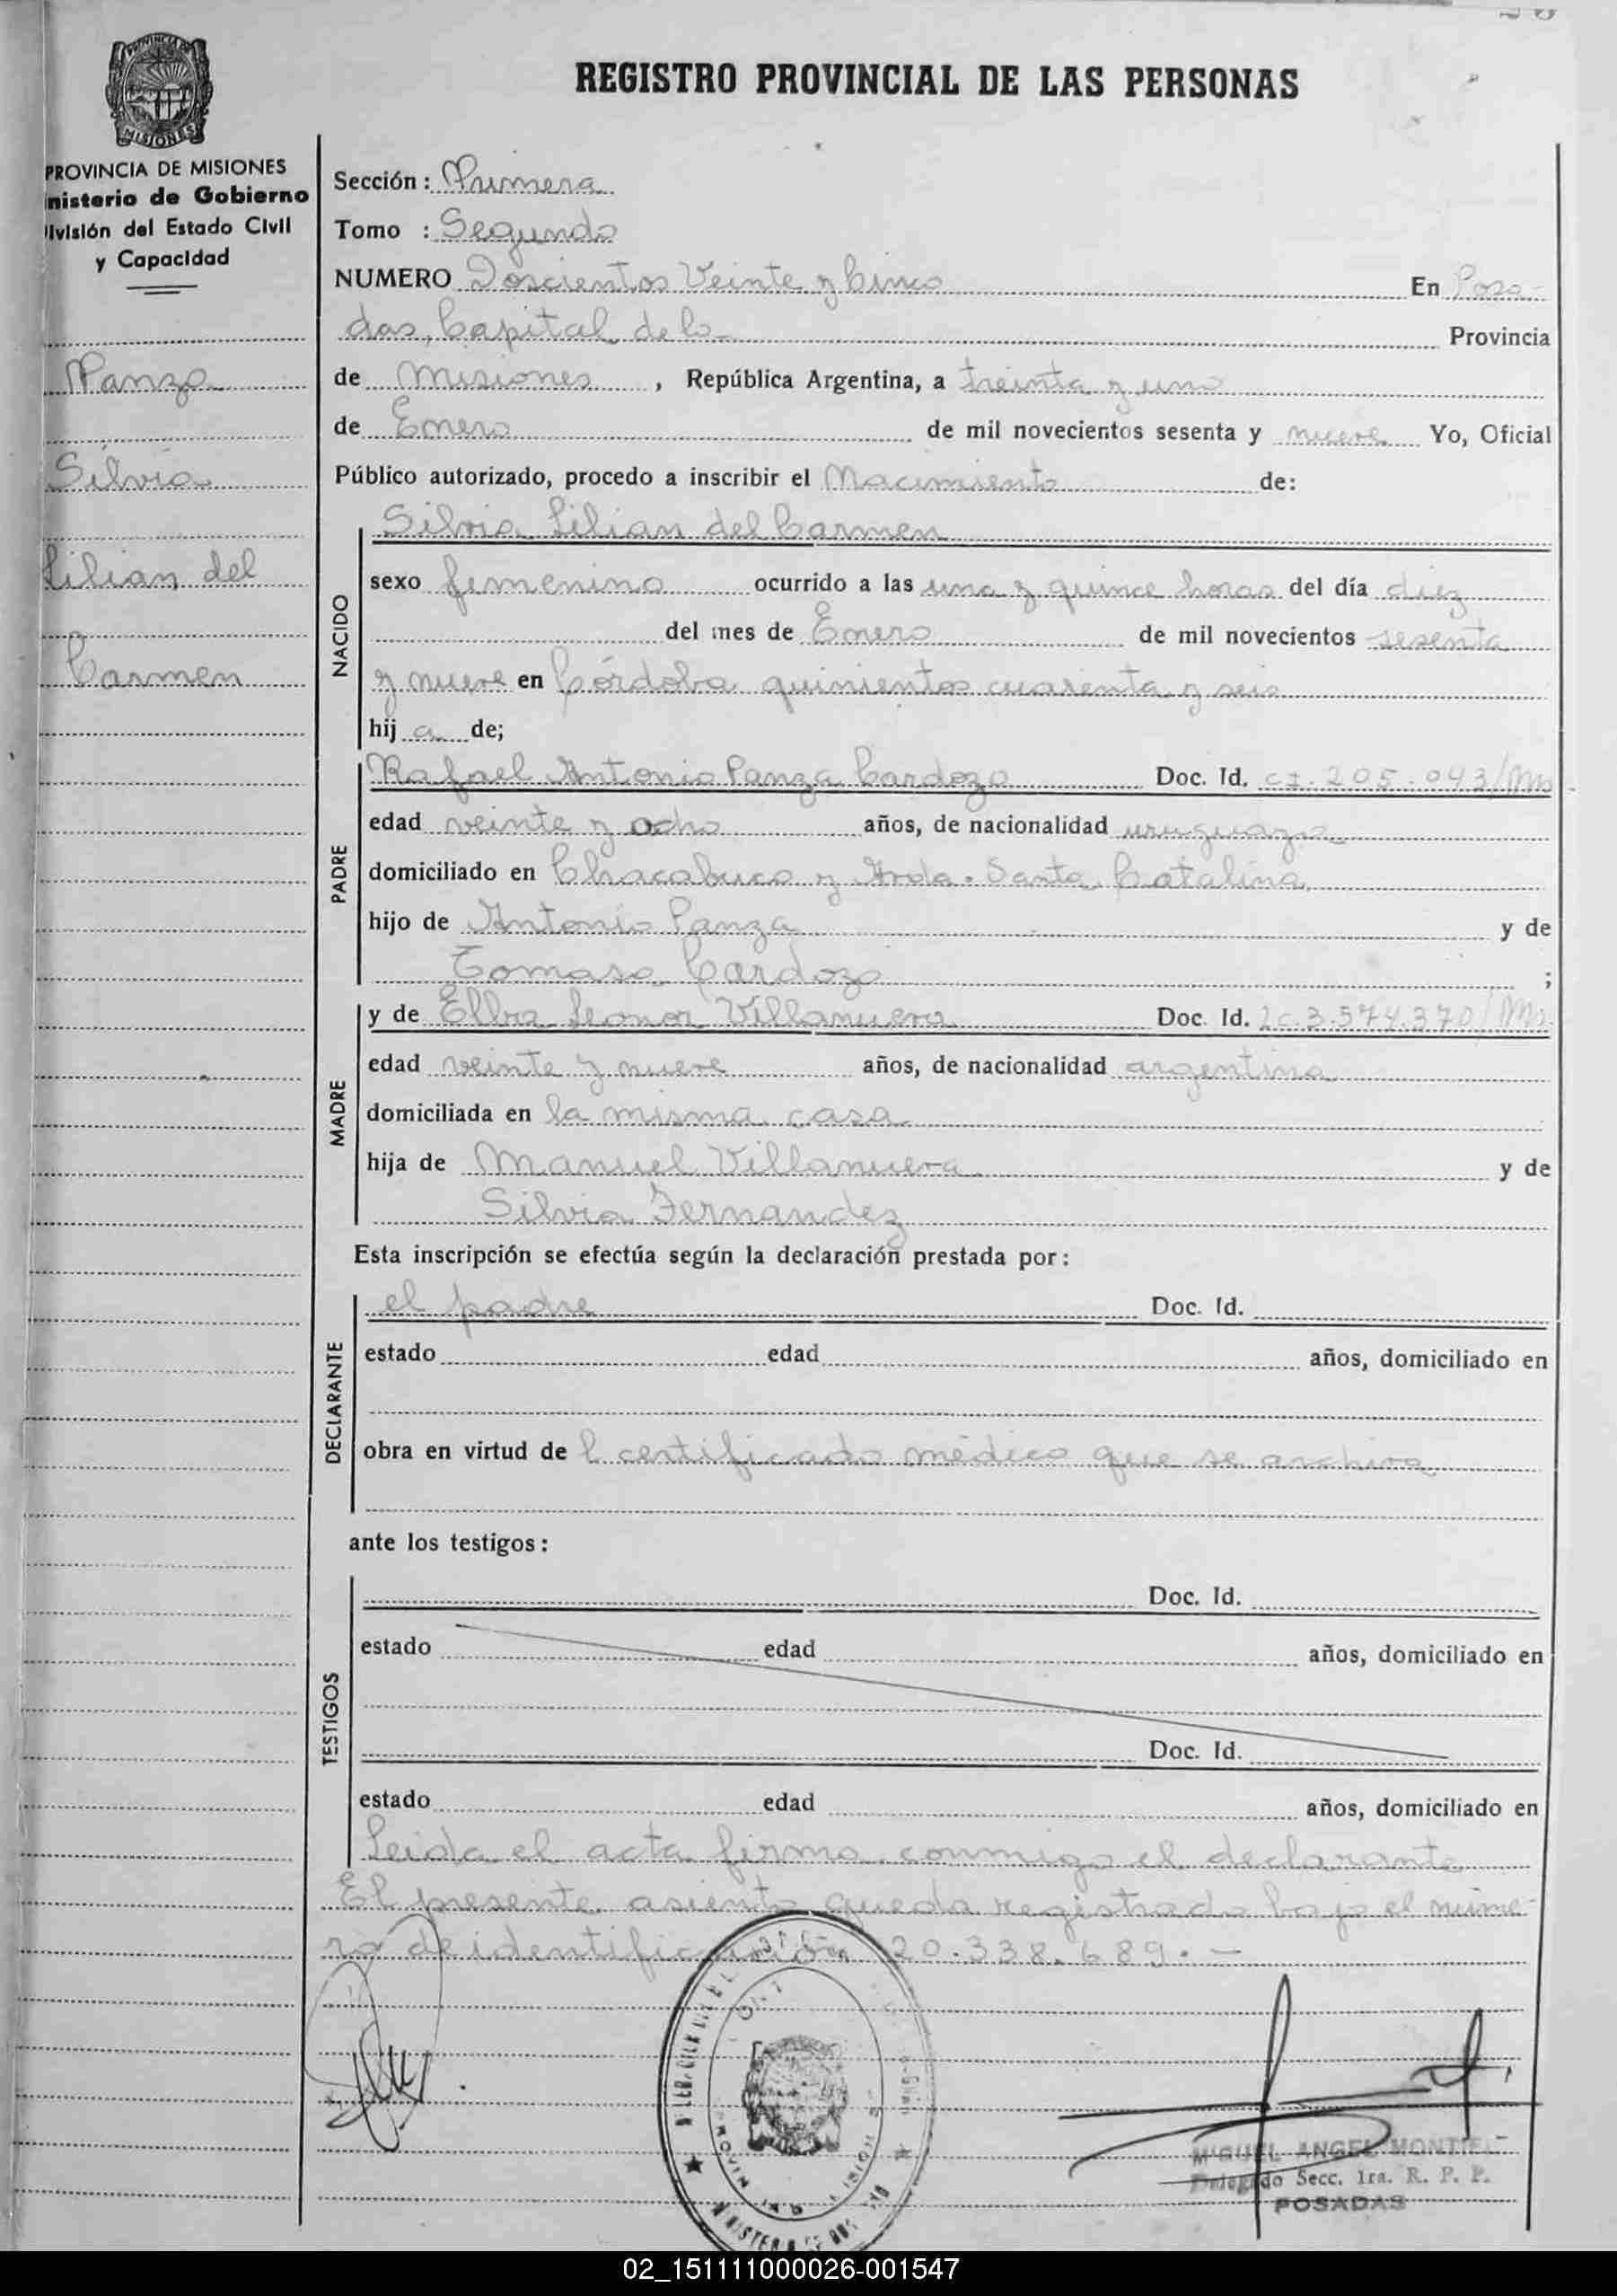 REGISTRO PROVINCIAL DE LAS PERSONAS
MISIONES
PROVINCIA DE MISIONES
nisterio de Gobierno
ivisión del Estado Civil
y Capacidad
Panza
Silvia
Lilian del
Carmen
Sección: Primera
Tomo : Segundo
NUMERO Doscientos Veinte y Cinco En Posa-
das, Capital de la Provincia
de Misiones, República Argentina, a treinta y uno
de Enero de mil novecientos sesenta y nueve Yo, Oficial
Público autorizado, procedo a inscribir el Nacimiento de:
NACIDO
Silvia Lilian del Carmen
sexo femenino ocurrido a las una y quince horas del día diez
del mes de Enero de mil novecientos sesenta
y nueve en Córdoba quinientos cuarenta y seis
hij a de;
PADRE
Rafael Antonio Panza Cardozo Doc. Id. CI. 205.093/Mns
edad veinte y ocho años, de nacionalidad uruguayo
domiciliado en Chacabuco y Avda. Santa Catalina
hijo de Antonio Panza y de
Tomasa Cardozo ;
MADRE
y de Elba Leonor Villanueva Doc. Id. Lc. 3.574.370/Mns
edad veinte y nueve años, de nacionalidad argentina
domiciliada en la misma casa
hija de Manuel Villanueva y de
Silvia Fernandez
Esta inscripción se efectúa según la declaración prestada por:
DECLARANTE
el padre Doc. Id.
estado edad años, domiciliado en
obra en virtud de l certificado médico que se archiva
ante los testigos:
TESTIGOS
Doc. Id.
estado edad años, domiciliado en
Doc. Id.
estado edad años, domiciliado en
Leida el acta firma conmigo el declarante
El presente asiento queda registrado bajo el núme-
ro de identificación 20.338.689.-
MIGUEL ANGEL MONTIEL
Delegado Secc. 1ra. R. P. P.
POSADAS
02_151111000026-001547